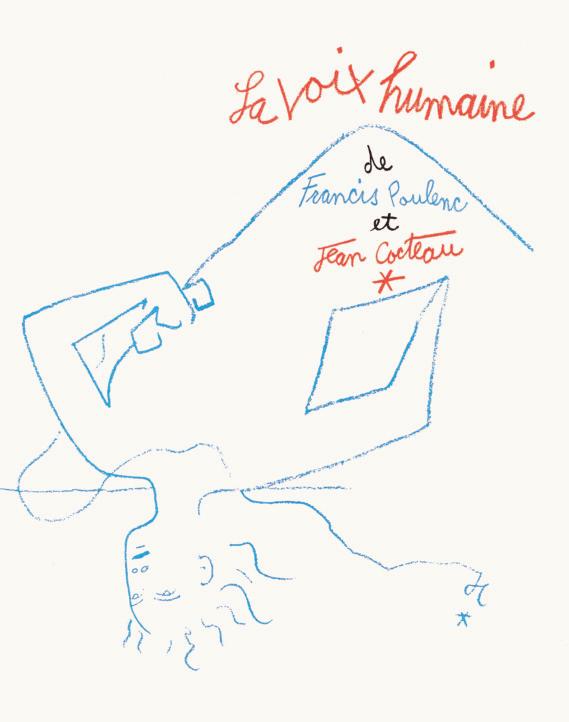 La Voix humaine
de
Francis Poulenc
et
Jean Cocteau
*